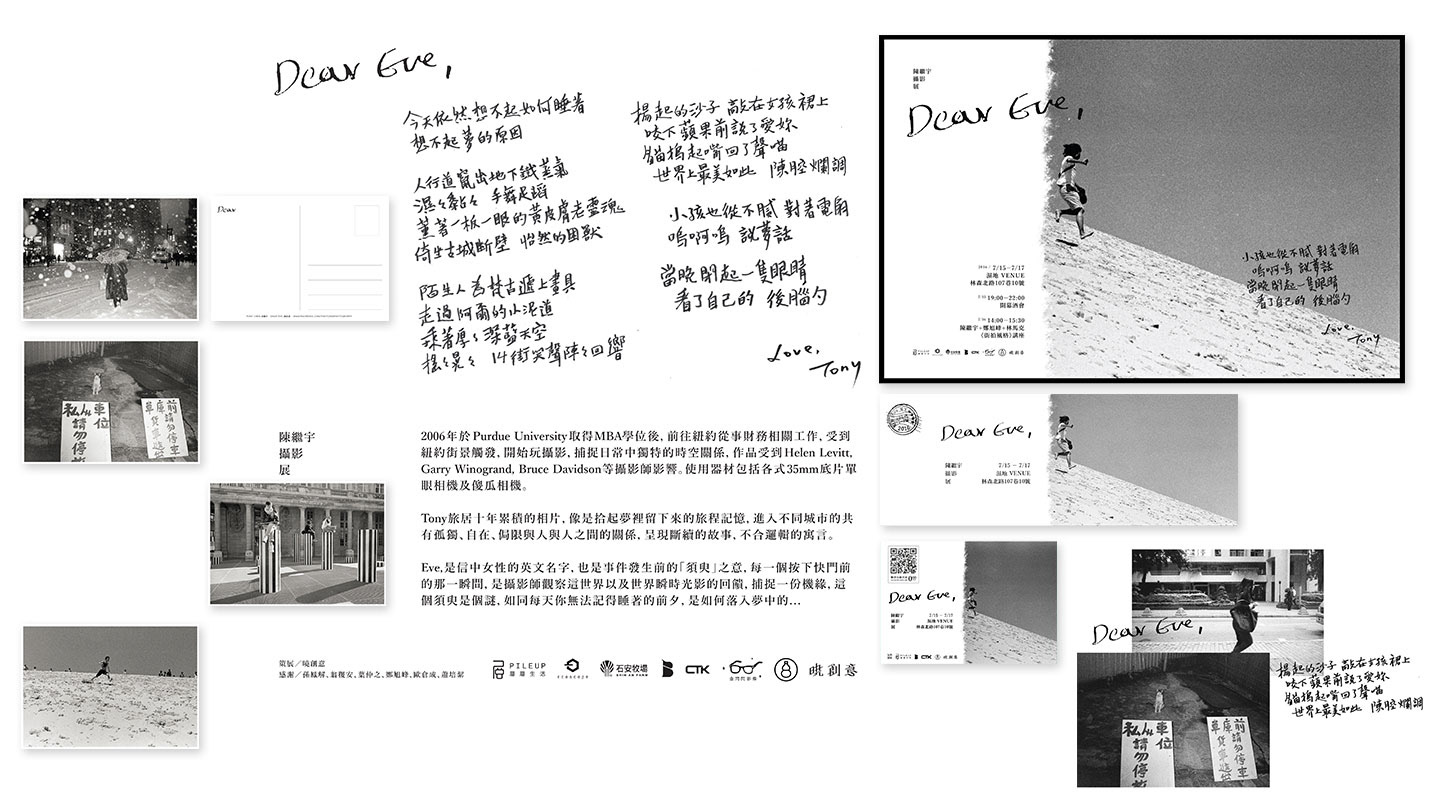 Dear Eve,
今天依然想不起如何睡著
想不起夢的原因
人行道竄出地下鐵蒸氣
濕々黏々 手舞足蹈
薰著一板一眼的黃皮膚老靈魂
倚坐古城斷壁 怡然的困獸
陌生人為梵古遞上畫具
走過阿爾的小泥道
乘著厚々深藍天空
搖々晃々 14街笑聲陣々回響
揚起的沙子 敲在女孩裙上
咬下蘋果前說了愛妳
貓搗起嘴回了聲喵
世界上最美如此 陳腔爛調
小孩也從不膩 對著電扇
嗚啊嗚 說夢話
當晚閉起一隻眼睛
看了自己的 後腦勺
Love,
Tony
Dear
私人車位
請勿停
前請勿停車
陳繼宇
攝影
展
2006年於Purdue University取得MBA學位後, 前往紐約從事財務相關工作, 受到
紐約街景觸發, 開始玩攝影, 捕捉日常中獨特的時空關係, 作品受到Helen Levitt,
Garry Winogrand, Bruce Davidson等攝影師影響。使用器材包括各式35mm底片單
眼相機及傻瓜相機。
Tony旅居十年累積的相片, 像是拾起夢裡留下來的旅程記憶, 進入不同城市的共
有孤獨、自在、侷限與人與人之間的關係, 呈現斷續的故事、不合邏輯的寓言。
Eve,是信中女性的英文名字, 也是事件發生前的「須臾」之意, 每一個按下快門前
的那一瞬間, 是攝影師觀察這世界以及世界瞬時光影的回饋, 捕捉一份機緣, 這
個須臾是個謎, 如同每天你無法記得睡著的前夕, 是如何落入夢中的…
策展／曉創意
感謝／孫鳳解、翁稷安、葉仲之、鄭旭峰、歐倉成、蕭培絜
PILEUP
層層生活
石安牧場
CTK
曉創意
陳繼宇
攝影
展
Dear Eve,
2016 / 7/15–7/17
濕地 VENUE
林森北路107巷10號
7/15 19:00–22:00
開幕酒會
7/16 14:00–15:30
陳繼宇+鄭旭峰+林馬克
《街拍風格》講座
小孩也從不膩 對著電扇
嗚啊嗚 說夢話
當晚閉起一隻眼睛
看了自己的 後腦勺
Love,
Tony
Dear Eve,
陳繼宇
攝影
展
7/15 – 7/17
濕地 VENUE
林森北路107巷10號
Dear Eve,
陳繼宇
攝影
展
7/15 – 7/17
濕地 VENUE
林森北路107巷10號
CTK
曉創意
Dear Eve,
揚起的沙子 敲在女孩裙上
咬下蘋果前說了愛妳
貓搗起嘴回了聲喵
世界上最美如此 陳腔爛調
私人車位
請勿停
前請勿停車